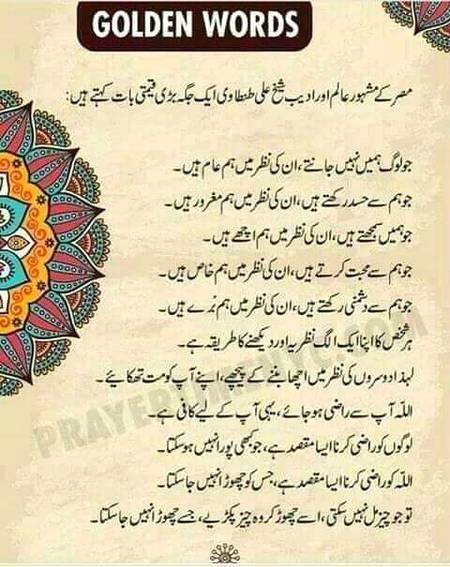 GOLDEN WORDS
مصر کے مشہور عالم اور ادیب شیخ علی طنطاوی ایک جگہ بڑی قیمتی بات کہتے ہیں:
جو لوگ ہمیں نہیں جانتے، ان کی نظر میں ہم عام ہیں۔
جو ہم سے حسد رکھتے ہیں، ان کی نظر میں ہم مغرور ہیں۔
جو ہمیں سمجھتے ہیں، ان کی نظر میں ہم اچھے ہیں۔
جو ہم سے محبت کرتے ہیں، ان کی نظر میں ہم خاص ہیں۔
جو ہم سے دشمنی رکھتے ہیں، ان کی نظر میں ہم بُرے ہیں۔
ہر شخص کا اپنا ایک الگ نظریہ اور دیکھنے کا طریقہ ہے۔
لہذا دوسروں کی نظر میں اچھا بننے کے پیچھے، اپنے آپ کو مت تھکائیے۔
اللہ آپ سے راضی ہو جائے، یہی آپ کے لیے کافی ہے۔
لوگوں کو راضی کرنا ایسا مقصد ہے، جو کبھی پورا نہیں ہو سکتا۔
اللہ کو راضی کرنا ایسا مقصد ہے، جس کو چھوڑا نہیں جا سکتا۔
تو جو چیز مل نہیں سکتی، اسے چھوڑ کر وہ چیز پکڑیے، جسے چھوڑا نہیں جا سکتا۔